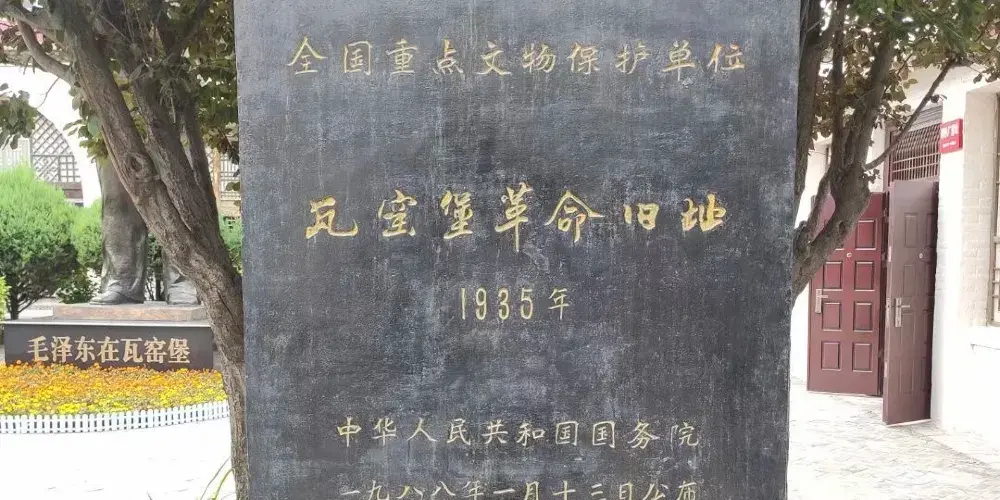 全国重点文物保护单位
瓦窑堡革命旧址
1935年
中华人民共和国国务院
一九八八年一月十三日公布
毛泽东在瓦窑堡